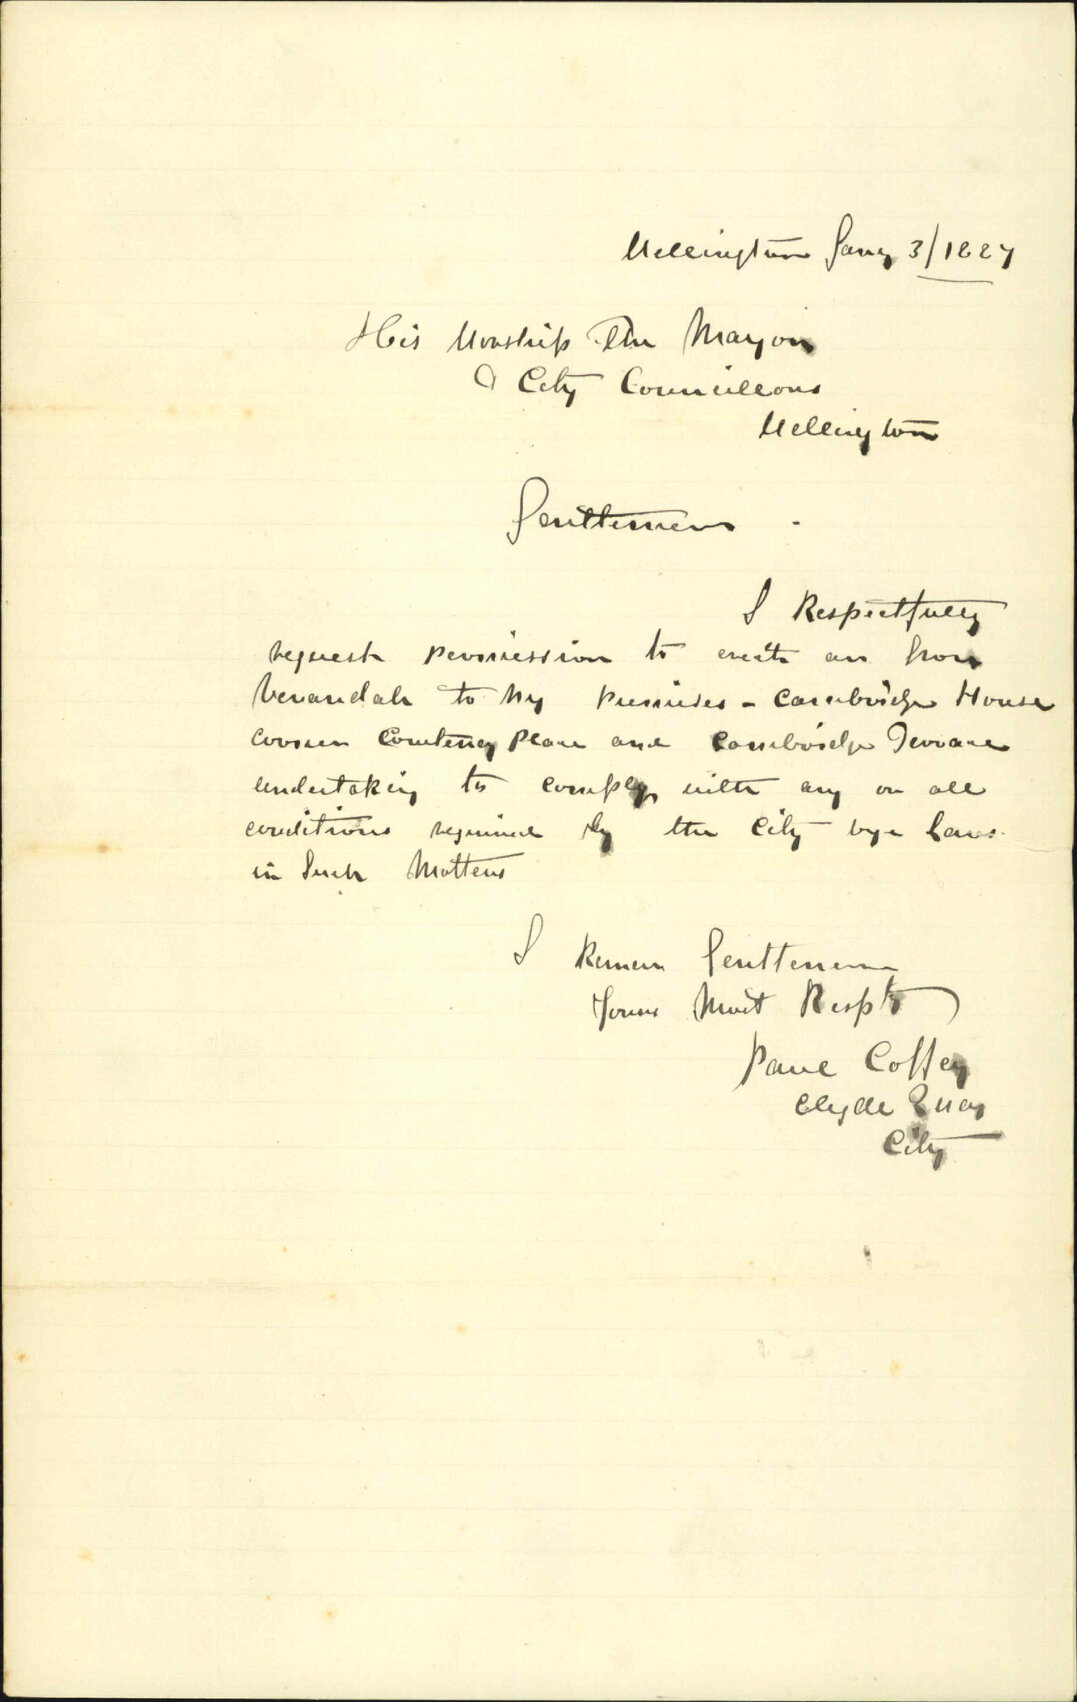 Wellington Jany 3/1887
His Worship The Mayor
& City Councillors
Wellington
Gentlemen.
I Respectfully
request permission to erect an Iron
Verandah to my premises - Cambridge House
corner Courtenay Place and Cambridge Terrace
undertaking to comply with any or all
conditions required by the City bye Laws
in Such Matters
I Remain Gentlemen
Yours Most Respty
Paul Coffey
Clyde Quay
City